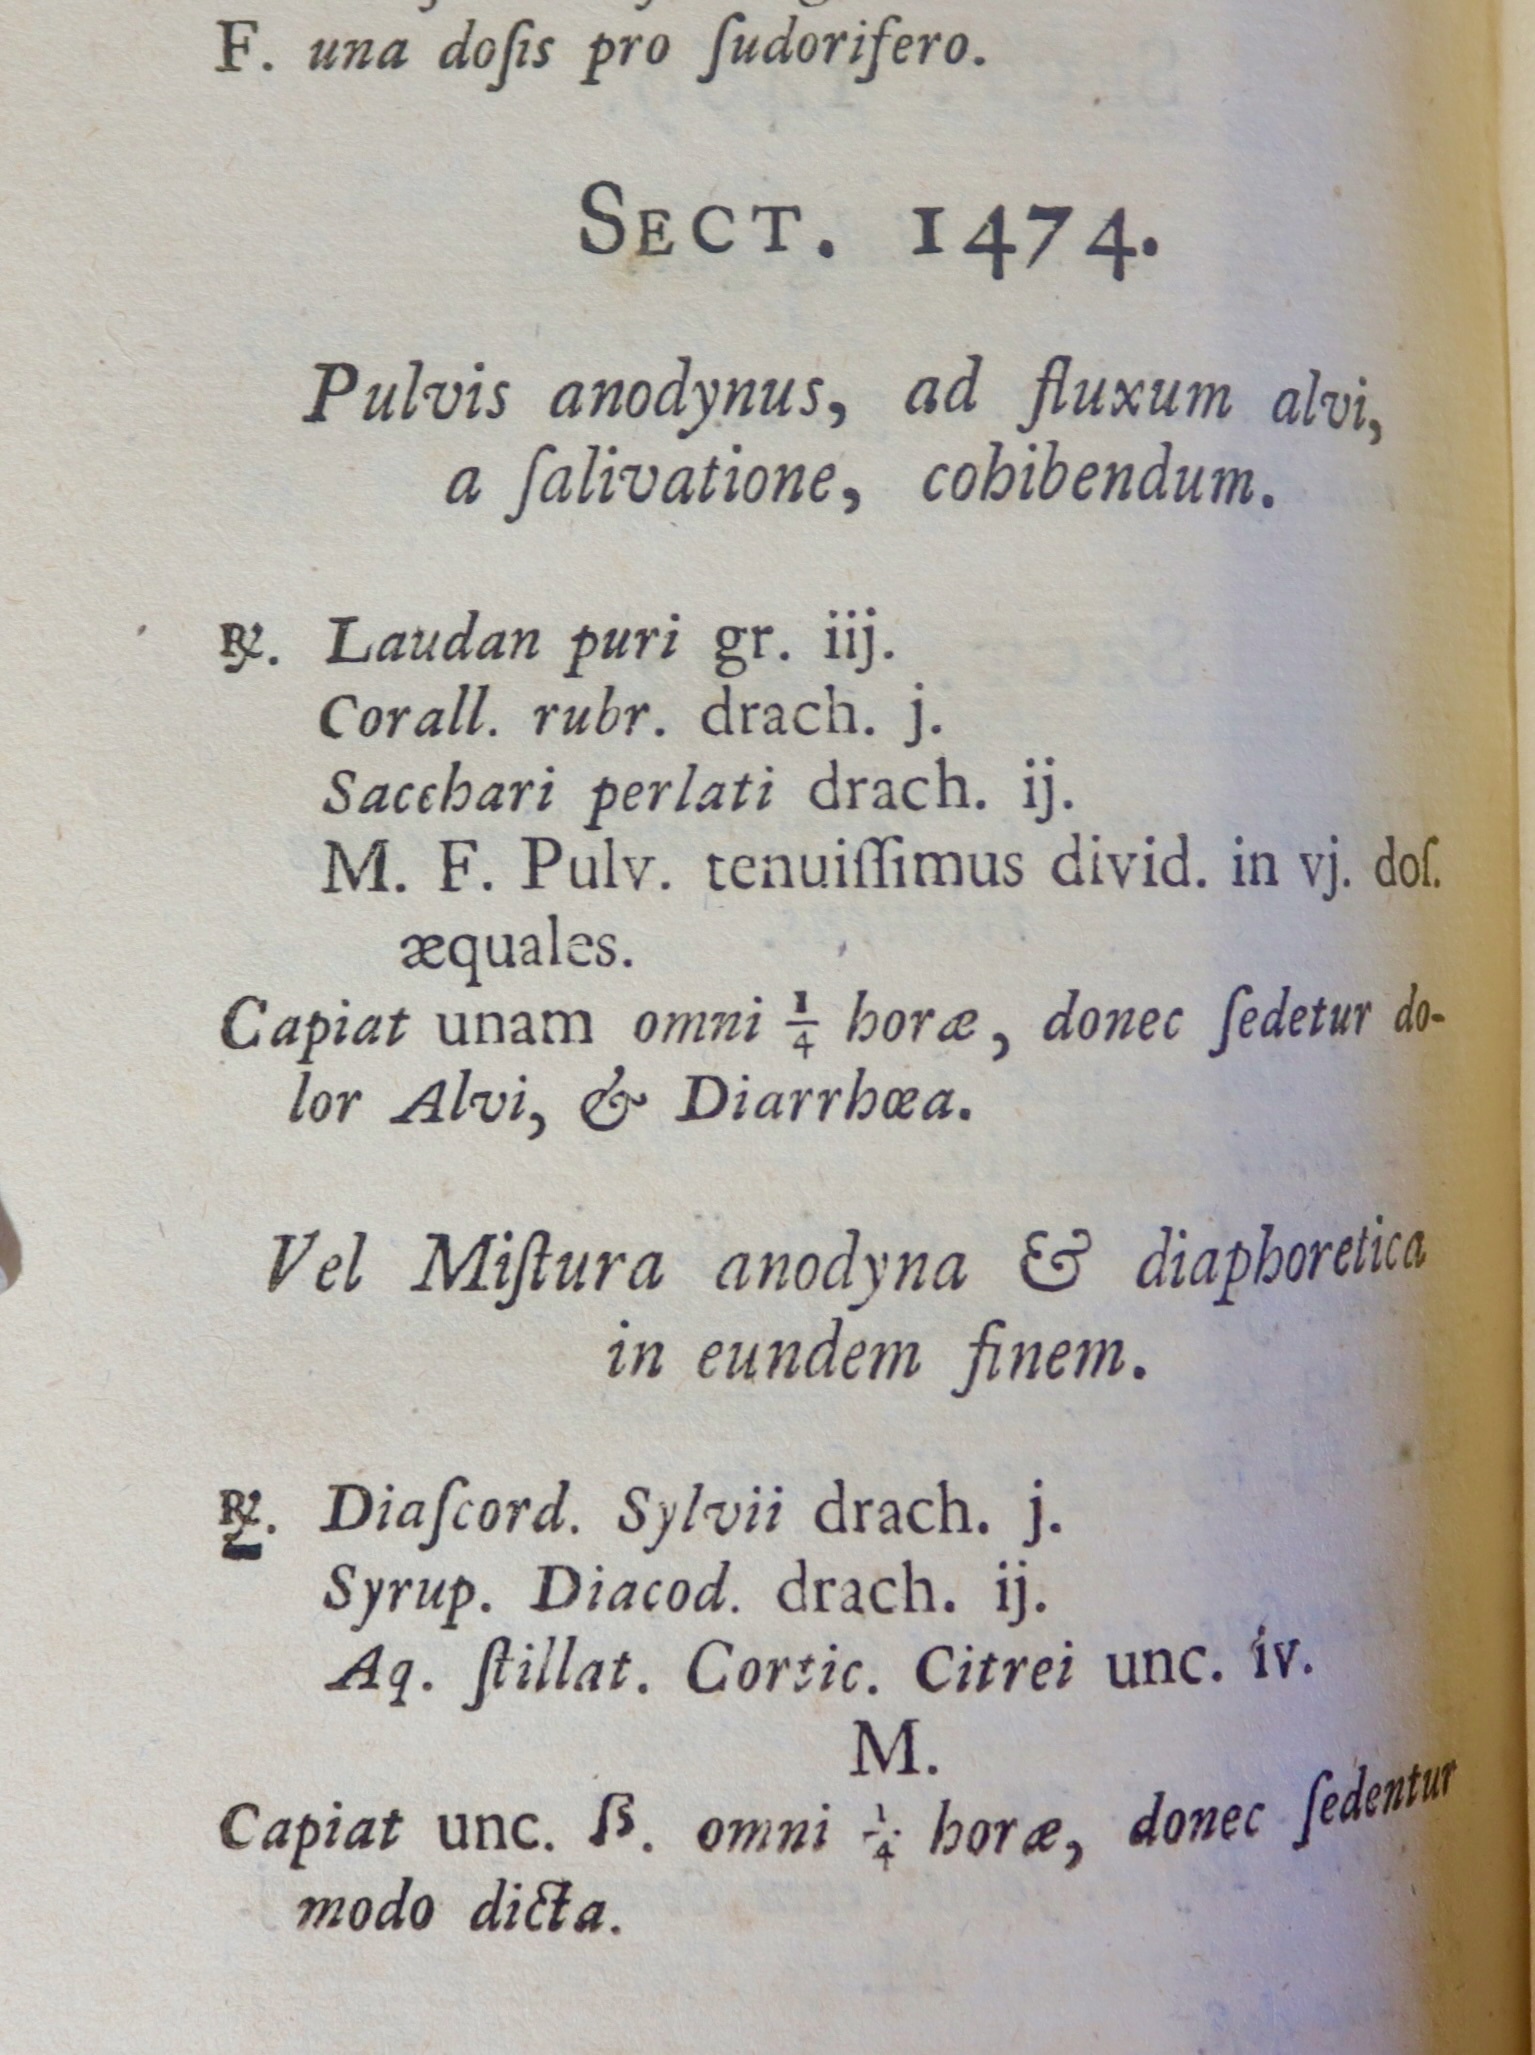 F. una doſis pro ſudorifero.
SECT. 1474.
Pulvis anodynus, ad fluxum alvi,
a ſalivatione, cohibendum.
℞. Laudan puri gr. iij.
Corall. rubr. drach. j.
Sacchari perlati drach. ij.
M. F. Pulv. tenuiſſimus divid. in vj. doſ.
æquales.
Capiat unam omni ¼ horæ, donec ſedetur do-
lor Alvi, & Diarrhœa.
Vel Miſtura anodyna & diaphoretica
in eundem finem.
℞. Diaſcord. Sylvii drach. j.
Syrup. Diacod. drach. ij.
Aq. ſtillat. Cortic. Citrei unc. iv.
M.
Capiat unc. ß. omni ¼ horæ, donec ſedentur
modo dicta.